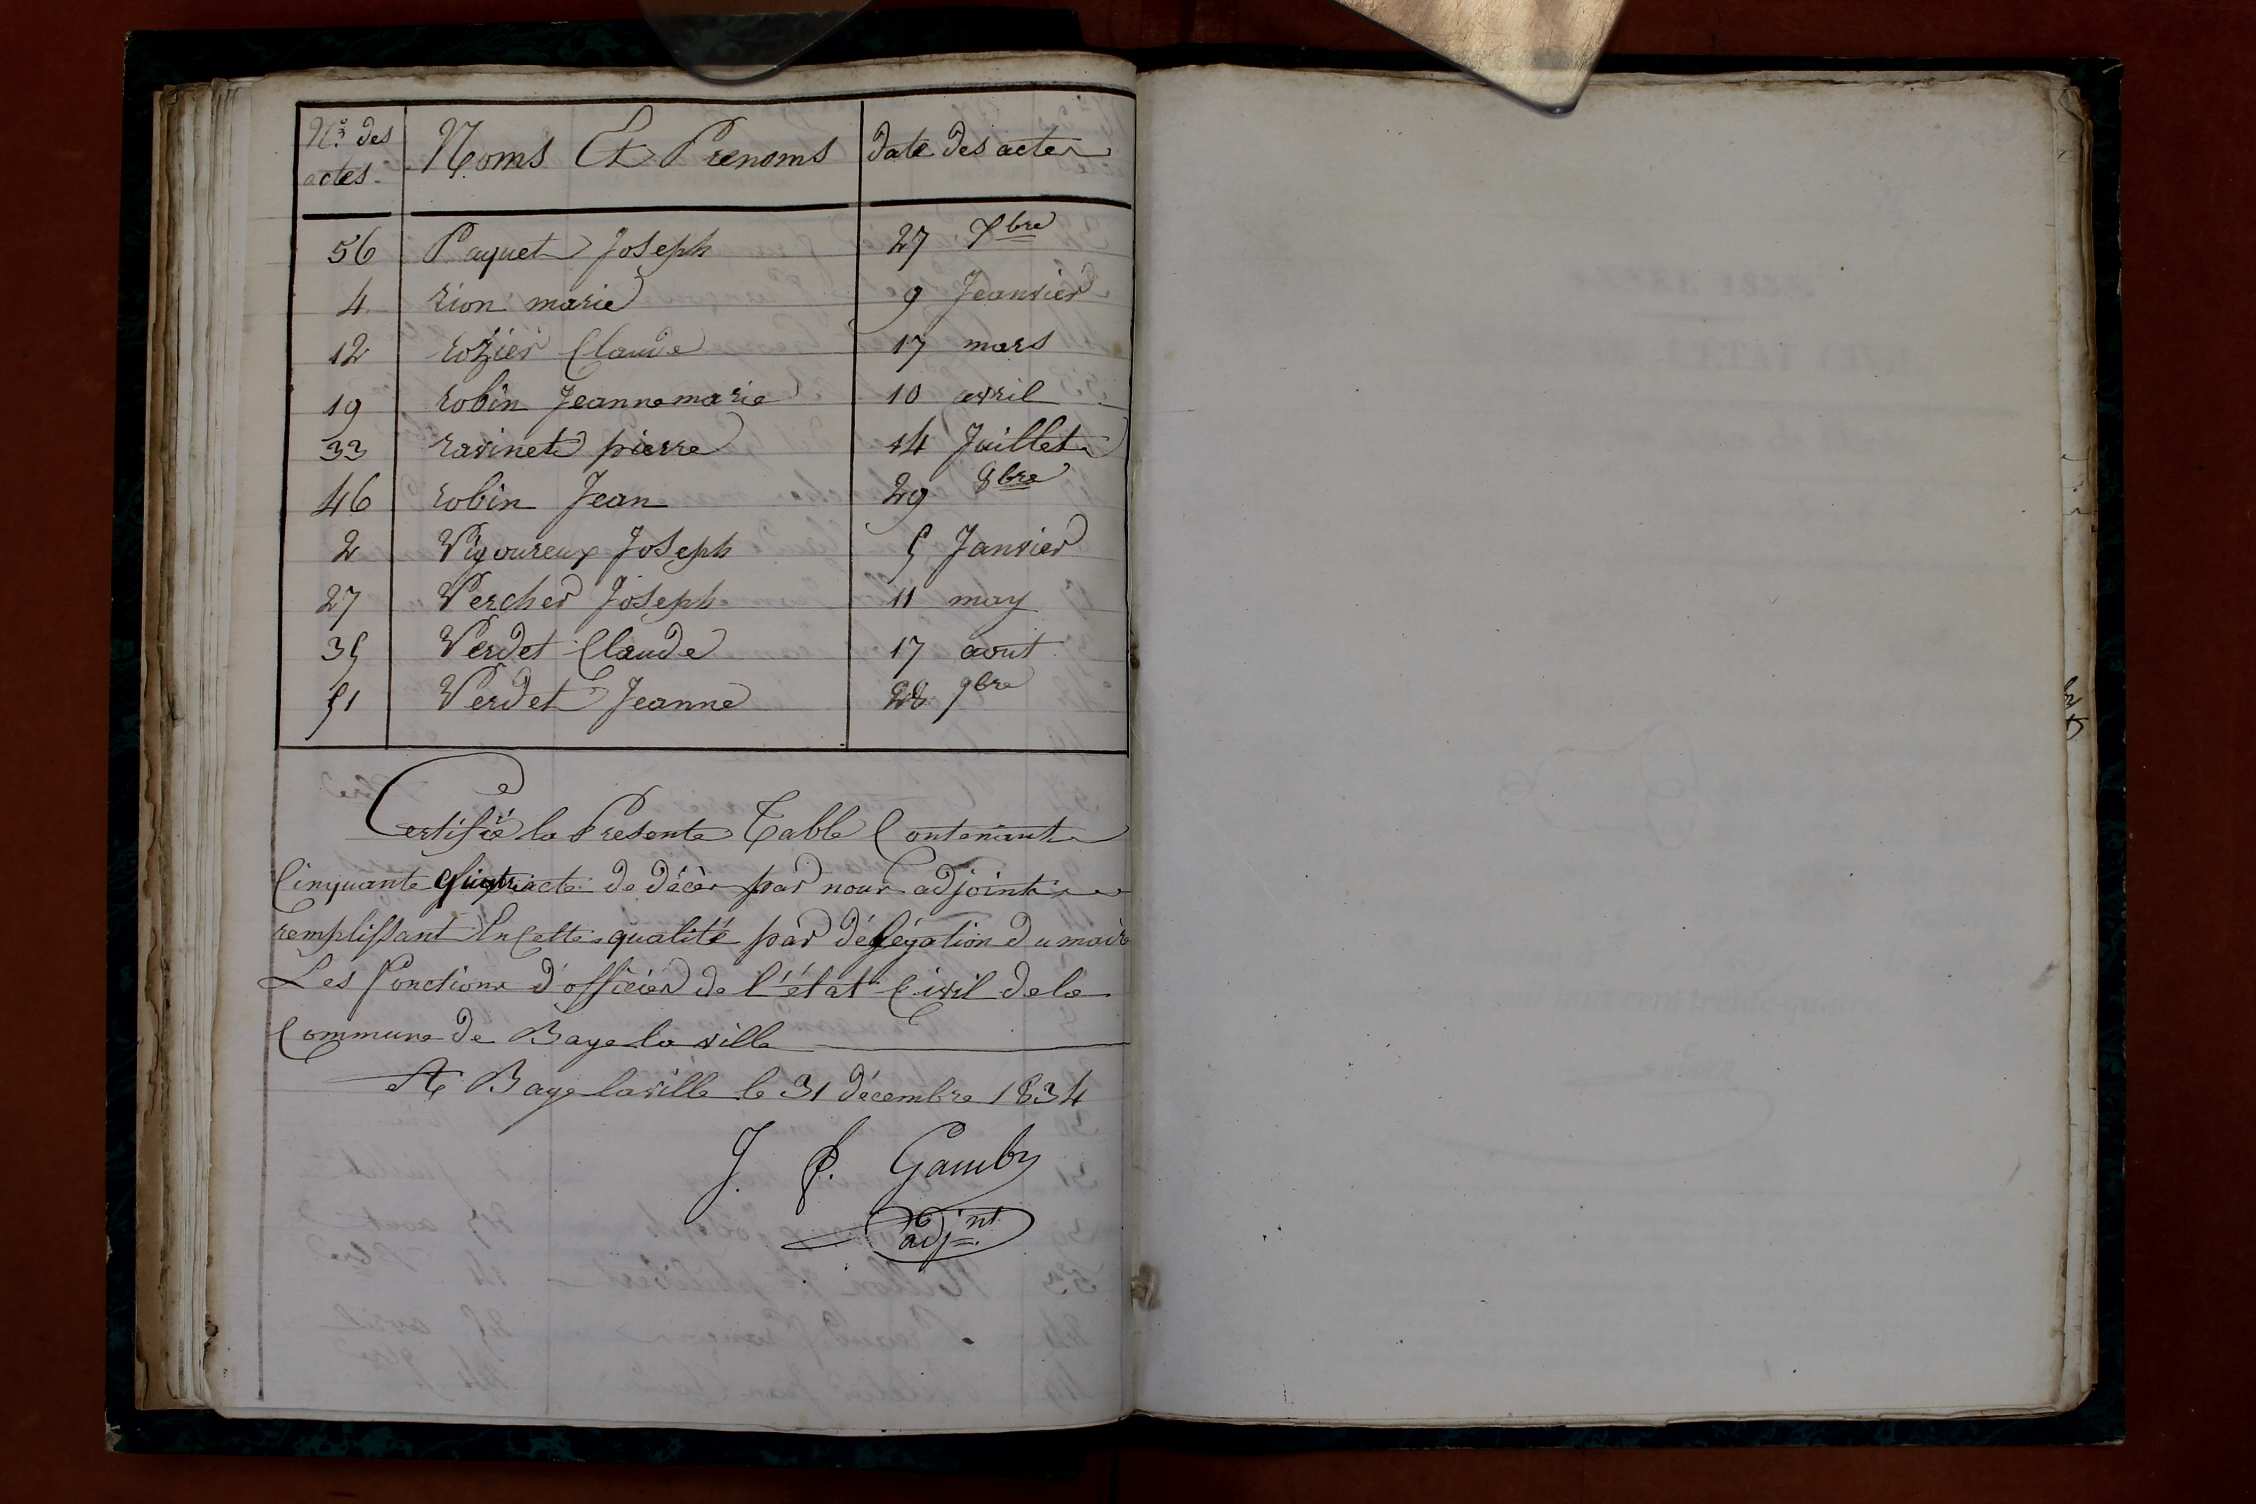 Nos des actes
Noms Et Prenoms
date des actes
56 Paquet Joseph 27 Xbre
4 rion marie 9 Jeanvier
12 rozier Claude 17 mars
19 robin Jeannemarie 10 avril
33 ravinet pierre 14 Juillet
46 robin Jean 29 8bre
2 Vigoureux Joseph 5 Janvier
27 Vercher Joseph 11 may
35 Verdet Claude 17 aout
51 Verdet Jeanne 28 9bre
Certifié la Presente Table Contenant
Cinquante acte de décès par nous adjoint
remplissant En Cette qualité par délégation du maire
Les fonctions d'officier de l'état Civil de la
Commune de Baye la ville
A Baye la ville le 31 décembre 1834
J. P. Gamby
adjnt